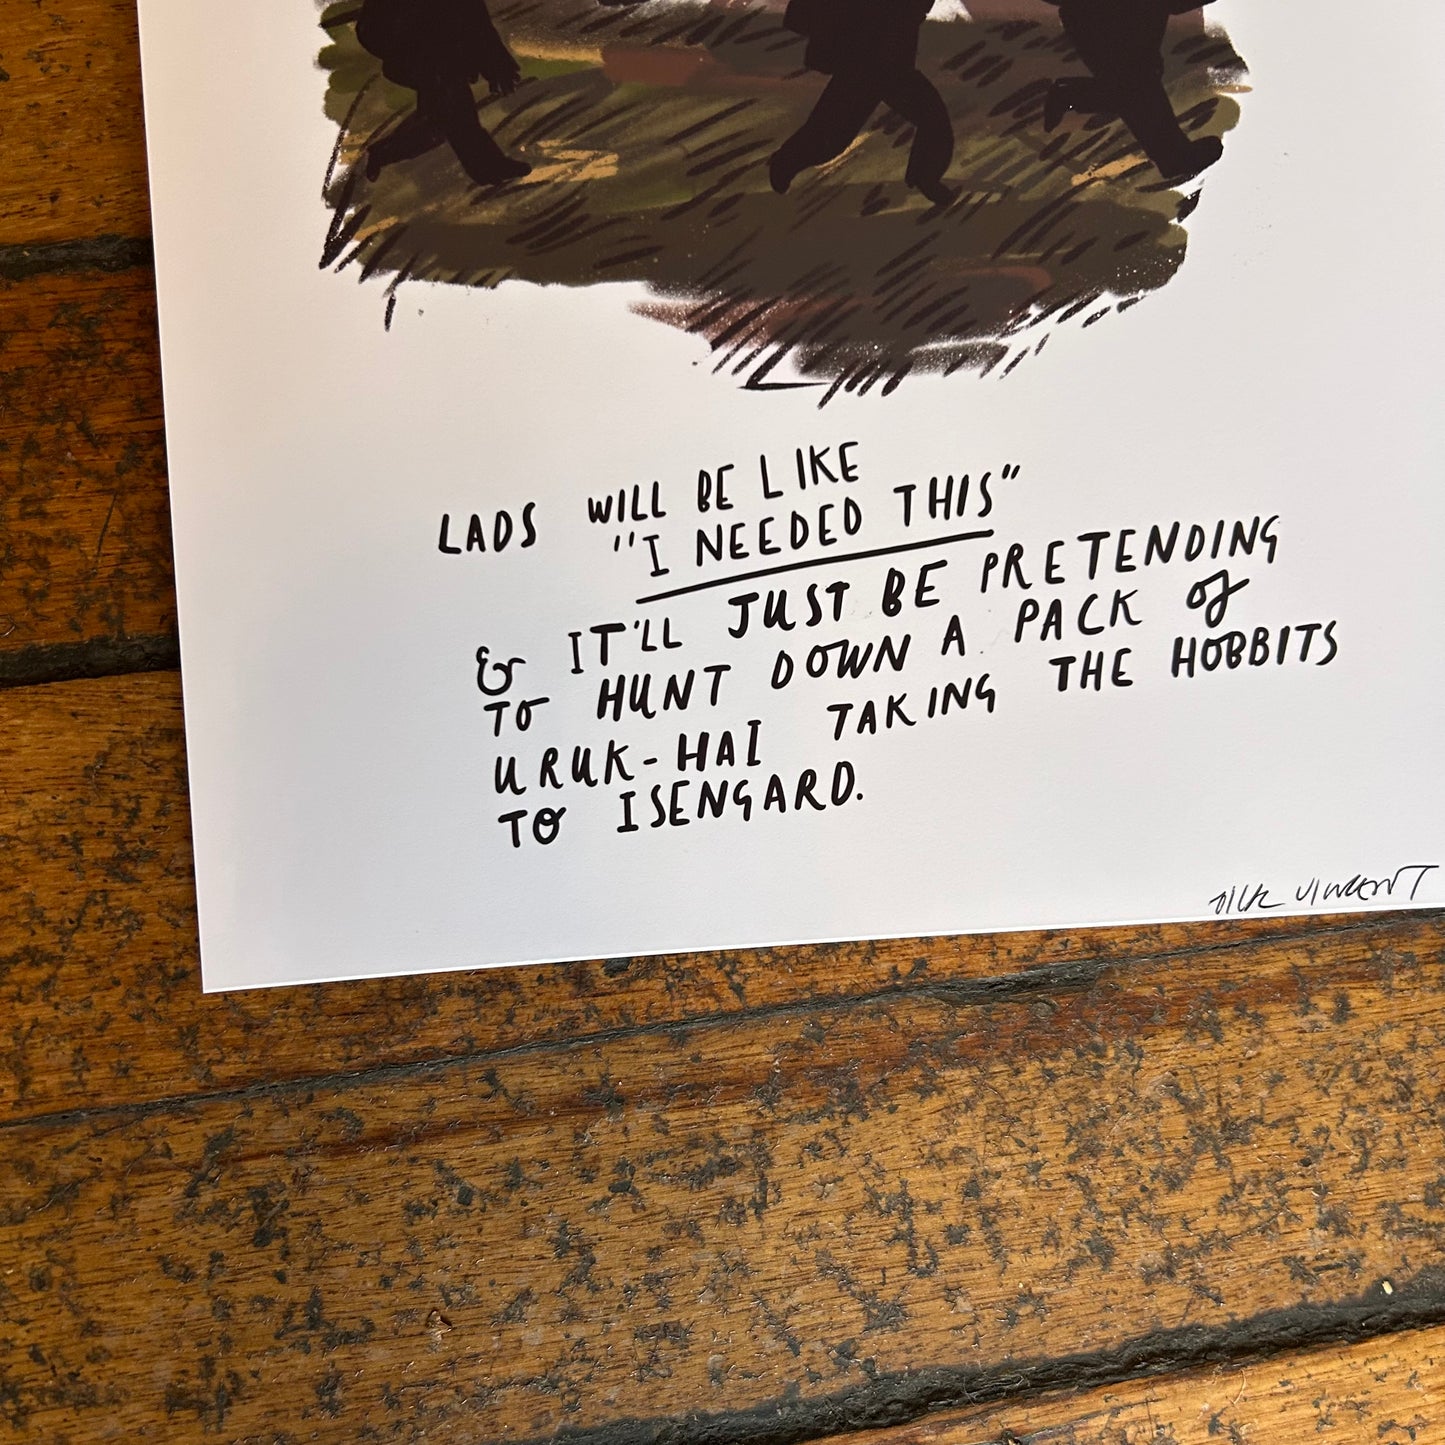 LADS WILL BE LIKE
"I NEEDED THIS"
& IT'LL JUST BE PRETENDING
TO HUNT DOWN A PACK of
URUK-HAI TAKING THE HOBBITS
TO ISENGARD.
VINCENT